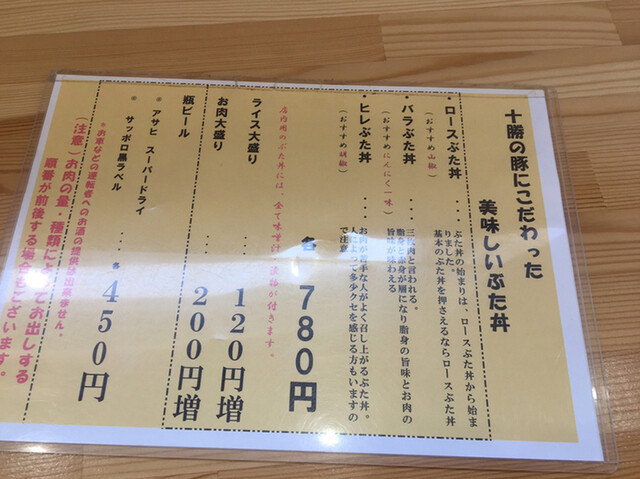 十勝の豚にこだわった
美味しいぶた丼
・ロースぶた丼
(おすすめ山椒)
・・・
ぶた丼の始まりは、ロースぶた丼から始ま
りました。
基本のぶた丼を押さえるならロースぶた丼
・バラぶた丼
(おすすめにんにく一味)
・・・
三枚肉と言われる。
脂身と赤身が層になり脂身の旨味とお肉の
旨味が味わえる
・ヒレぶた丼
(おすすめ胡椒)
・・・
お肉が苦手な人がよく召し上がるぶた丼。
人によって多少クセを感じる方もいますの
で注意
各 780円
店内用のぶた丼には、全て味噌汁、漬物が付きます。
ライス大盛り ・・・ 120円増
お肉大盛り ・・・ 200円増
瓶ビール
※ アサヒ スーパードライ
※ サッポロ黒ラベル ・・・ 各 450円
*お車などの運転者へのお酒の提供は出来ません。
(注意)お肉の量・種類によってお出しする
順番が前後する場合もございます。